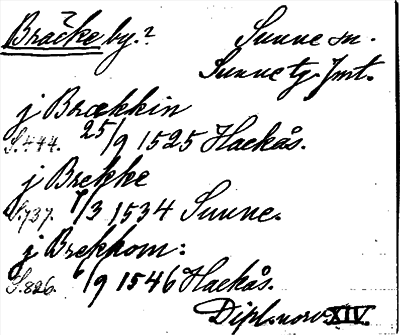 Bračke by.? Sunne sn.
Sunne tg. Jmt.
j Brækkin
S.444. 25/9 1525 Hackås.
j Brekke
S.737. 7/3 1534 Sunne.
j Brekkom:
S.826. 6/9 1546 Hackås.
Dipl. norv. XIV.